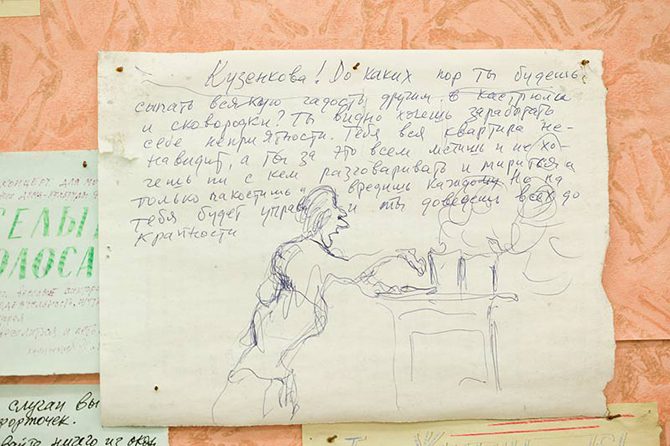 Кузенкова! До каких пор ты будешь
сыпать всякую гадость другим в кастрюли
и сковородки? Ты видно хочешь заработать
себе неприятности. Тебя вся квартира не-
навидит, а ты за это всем мстишь и не хо-
чешь ни с кем разговаривать и мириться а
только пакостишь и вредишь каждому Но на
тебя будет управа и ты доведешь всех до
крайности
концерт для
СЕЛЫЕ
ОЛОСА
случаи вы
форточек.
вайте ничего из окон